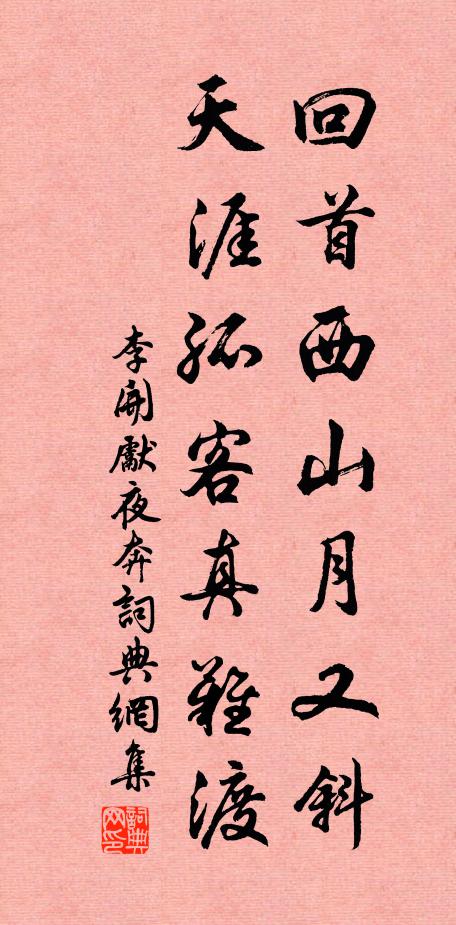 回首西山月又斜
天涯孤客真難渡
李開獻夜奔詞典網集
詞典网印